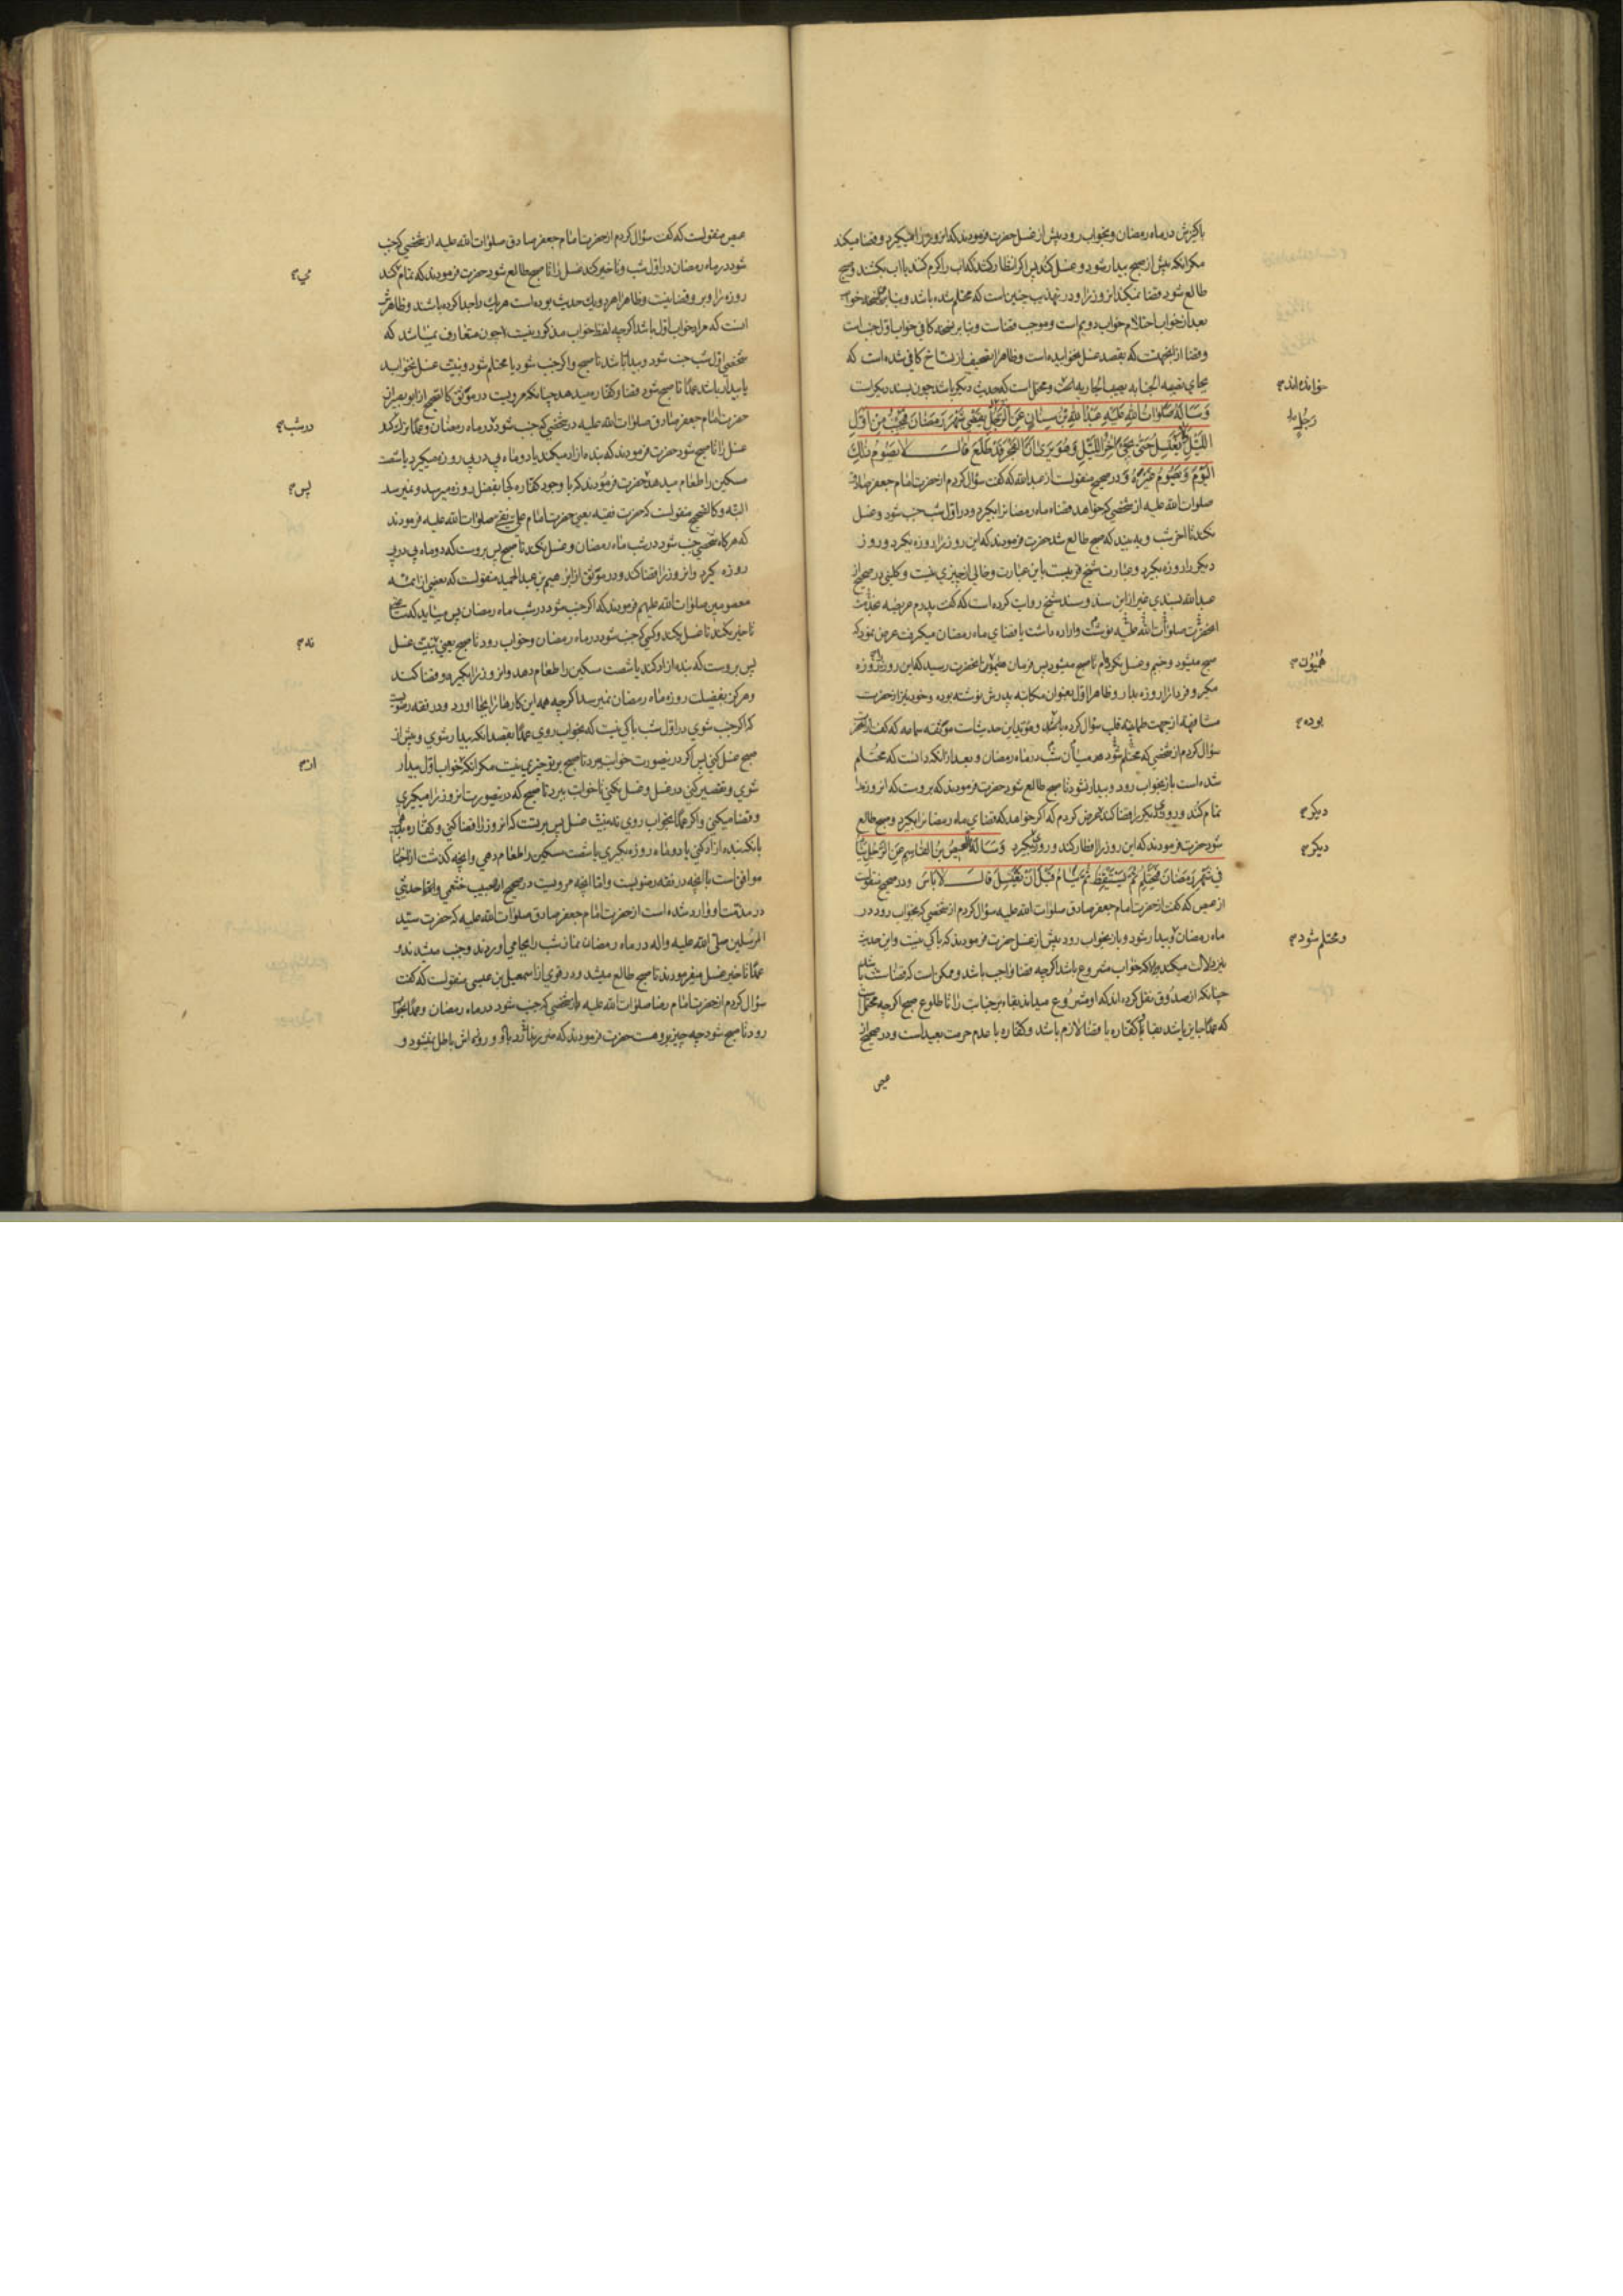 باکنیزش در ماه رمضان و بخواب رود پیش از غسل حضرت فرمودند که آن روز را میگیرد و قضا میکند
مکر آنکه پیش از صبح بیدار شود و غسل کند پس اگر انتظار کشد که آب را گرم کنند یا آب بکشند و صبح
طالع شود قضا نمیکند آن روز را و در تهذیب چنین است که محتلم شده باشد و بنابر نسخه خواب
بعد از خواب احتلام خواب دویم است و موجب قضاست و بنابر نسخه کافی خواب اول جنابت
و قضا از انجهت که بقصد غسل نخوابیده است و ظاهرا تصحیف از نساخ کافی شده است که
بجای بقیه الجنابه یصیب الجاریه الخ و محتمل است که حدیث دیگر باشد چون بسند دیگر است
خوانده اند
وَسَاَلَهُ صَلَوَاتُ اللهِ عَلَيْهِ عَبْدُ اللهِ بْنُ سِنَانٍ عَنِ الرَّجُلِ يَقْضِي شَهْرَ رَمَضَانَ فَيُجْنِبُ مِنْ اَوَّلِ
رَجُلٍ
اللَّيْلِ وَلَا يَغْتَسِلُ حَتَّى يَجِيءَ اٰخِرُ اللَّيْلِ وَهُوَ يَرٰى اَنَّ الْفَجْرَ قَدْ طَلَعَ قَالَ لَا يَصُومُ ذٰلِكَ
الْيَوْمَ وَيَصُومُ غَيْرَهُ و در صحیح منقولست از عبدالله که گفت سؤال کردم از حضرت امام جعفر صادق
صلوات الله علیه از شخصی که خواهد قضاء ماه رمضان را بگیرد و در اول شب جنب شود و غسل
نکند تا آخر شب و به بیند که صبح طالع شد حضرت فرمودند که این روز را روزه نگیرد و روز
دیگر را روزه بگیرد و عبارت شیخ قریبست باین عبارت و خالی از چیزی نیست و کلینی در صحیح از
عبدالله بسندی غیر از این سند و سند شیخ روایت کرده است که گفت پدرم عریضه بخدمت
آنحضرت صلوات الله علیه نوشت و اراده داشت یا قضای ماه رمضان میگرفت عرض نمود که
صبح میشود و جنبم و غسل نکرده‌ام تا صبح میشود پس فرمان همیون آنحضرت رسید که این روز را روزه
همیون
مگیر و فردا را روزه بدار و ظاهرا اول بعنوان مکاتبه پدرش نوشته بوده و خود نیز از حضرت
مشافهة از جهت طمانینه قلب سؤال کرده باشد و مؤید این حدیث است موثقه سماعه که گفت از آنحضرت
بوده
سؤال کردم از شخصی که محتلم شود در میان شب در ماه رمضان و بعد از آنکه دانست که محتلم
شده است باز بخواب رود و بیدار نشود تا صبح طالع شود حضرت فرمودند که بر اوست که آن روز را
تمام کند و روزی دیگر را قضا کند عرض کردم که اگر خواهد که قضای ماه رمضان را بگیرد و صبح طالع
دیگر
شود حضرت فرمودند که این روز را افطار کند و روزی بگیرد وَسَاَلَهُ الْعِيصُ بْنُ الْقَاسِمِ عَنِ الرَّجُلِ يَنَامُ
دیگر
فِي شَهْرِ رَمَضَانَ فَيَحْتَلِمُ ثُمَّ يَسْتَيْقِظُ ثُمَّ يَنَامُ قَبْلَ اَنْ يَغْتَسِلَ قَالَ لَا بَأْسَ و در صحیح منقولست
از عیص که گفت از حضرت امام جعفر صادق صلوات الله علیه سؤال کردم از شخصی که بخواب رود در
ماه رمضان و بیدار شود و باز بخواب رود پیش از غسل حضرت فرمودند که باکی نیست و این حدیث
و محتلم شود
نیز دلالت میکند بر آنکه خواب مشروع باشد اگرچه قضا واجب باشد و ممکن است که قضا نباشد
چنانکه از صدوق نقل کرده‌اند که او مشروع میداند بقاء بر جنابت را تا طلوع صبح اگرچه محتمل است
که عمدا جایز باشد بقا با کفاره یا قضا لازم باشد و کفاره با عدم حرمت بعید است و در صحیح از
عیص
عیص منقولست که گفت سؤال کردم از حضرت امام جعفر صادق صلوات الله علیه از شخصی که جنب
شود در ماه رمضان در اول شب و تاخیر کند غسل را تا صبح طالع شود حضرت فرمودند که تمام کند
می
روزه را و بر او قضا نیست و ظاهرا هر دو یک حدیث بوده است هر یک را جدا کرده باشند و ظاهرش
آنست که مراد خواب اول باشد اگرچه لفظ خواب مذکور نیست چون متعارف نمیباشد که
شخصی اول شب جنب شود و بیدار باشد تا صبح و اگر جنب شود یا محتلم شود و نیت غسل بخوابد
یا بیدار باشد عمدا تا صبح شود قضا و کفاره میدهد چنانکه مرویست در موثق کالصحیح از ابوبصیر از
حضرت امام جعفر صادق صلوات الله علیه در شخصی که جنب شود در ماه رمضان و عمدا ترک کند
در شب
غسل را تا صبح شود حضرت فرمودند که بنده آزاد میکند یا دو ماه پی در پی روزه میگیرد یا شصت
مسکین را طعام میدهد حضرت فرمودند که با وجود کفاره کجا بفضل روزه میرسد و نمیرسد
پس
البته و کالصحیح منقولست که حضرت فقیه یعنی حضرت امام علی نقی صلوات الله علیه فرمودند
که هرگاه شخصی جنب شود در شب ماه رمضان و غسل نکند تا صبح پس بر اوست که دو ماه پی در پی
روزه گیرد و آن روز را قضا کند و در موثق از ابراهیم بن عبدالحمید منقولست که بعضی از ائمه
معصومین صلوات الله علیهم فرمودند که اگر جنب شود در شب ماه رمضان پس میباید که تا صبح
تاخیر نکند تا غسل بکند و کسی که جنب شود در ماه رمضان و خواب رود تا صبح یعنی بنیت غسل
نه
پس بر اوست که بنده آزاد کند یا شصت مسکین را طعام دهد و آن روز را بگیرد و قضا کند
و هرگز بفضیلت روزه ماه رمضان نمیرسد اگرچه همه این کارها را بجا آورد و در فقه رضویست
که اگر جنب شوی در اول شب باکی نیست که بخواب روی عمدا بقصد آنکه بیدار شوی و پیش از
صبح غسل کنی پس اگر درینصورت خواب ببرد تا صبح بر تو چیزی نیست مگر آنکه خواب اول بیدار
از
شوی و تقصیر کنی در غسل و غسل نکنی تا خواب ببرد تا صبح که درینصورت آن روز را میگیری
و قضا میکنی و اگر عمدا بخواب روی نه بنیت غسل پس بر تست که آن روز را قضا کنی و کفاره بدهی
بانکه بنده آزاد کنی یا دو ماه روزه بگیری یا شصت مسکین را طعام دهی و آنچه گذشت از اخبار
موافق است با آنچه در فقه رضویست و اما آنچه مرویست در صحیح از حبیب خثعمی و انما حدیثی
در مذمت او وارد شده است از حضرت امام جعفر صادق صلوات الله علیه که حضرت سید
المرسلین صلی الله علیه و اله در ماه رمضان نماز شب را بجا می‌آوردند و جنب میشدند و
عمدا تاخیر غسل میفرمودند تا صبح طالع میشد و در قوی از اسمعیل بن عیسی منقولست که گفت
سؤال کردم از حضرت امام رضا صلوات الله علیه از شخصی که جنب شود در ماه رمضان و عمدا بخواب
رود تا صبح شود چه چیز بر اوست حضرت فرمودند که ضرر ندارد باو و روزه اش باطل نمیشود و